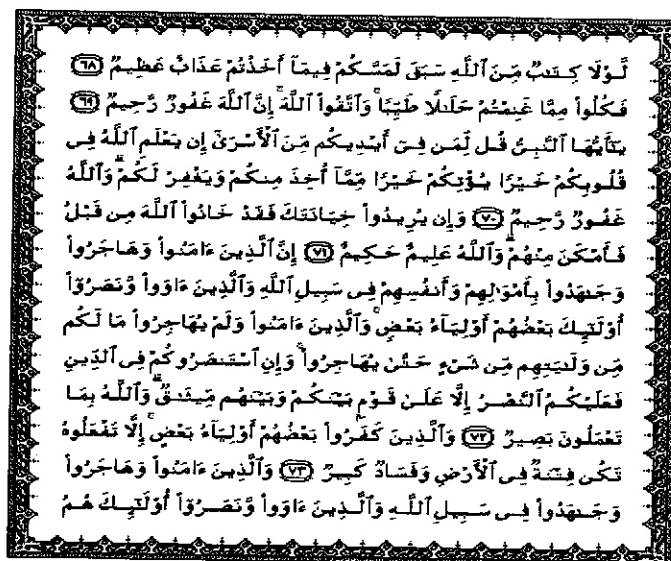 لَّوْلَا كِتَٰبٌ مِّنَ ٱللَّهِ سَبَقَ لَمَسَّكُمْ فِيمَآ أَخَذْتُمْ عَذَابٌ عَظِيمٌ ٦٨
فَكُلُوا۟ مِمَّا غَنِمْتُمْ حَلَٰلًا طَيِّبًا ۚ وَٱتَّقُوا۟ ٱللَّهَ ۚ إِنَّ ٱللَّهَ غَفُورٌ رَّحِيمٌ ٦٩
يَٰٓأَيُّهَا ٱلنَّبِىُّ قُل لِّمَن فِىٓ أَيْدِيكُم مِّنَ ٱلْأَسْرَىٰٓ إِن يَعْلَمِ ٱللَّهُ فِى
قُلُوبِكُمْ خَيْرًا يُؤْتِكُمْ خَيْرًا مِّمَّآ أُخِذَ مِنكُمْ وَيَغْفِرْ لَكُمْ ۗ وَٱللَّهُ
غَفُورٌ رَّحِيمٌ ٧٠ وَإِن يُرِيدُوا۟ خِيَانَتَكَ فَقَدْ خَانُوا۟ ٱللَّهَ مِن قَبْلُ
فَأَمْكَنَ مِنْهُمْ ۗ وَٱللَّهُ عَلِيمٌ حَكِيمٌ ٧١ إِنَّ ٱلَّذِينَ ءَامَنُوا۟ وَهَاجَرُوا۟
وَجَٰهَدُوا۟ بِأَمْوَٰلِهِمْ وَأَنفُسِهِمْ فِى سَبِيلِ ٱللَّهِ وَٱلَّذِينَ ءَاوَوا۟ وَّنَصَرُوٓا۟
أُو۟لَٰٓئِكَ بَعْضُهُمْ أَوْلِيَآءُ بَعْضٍ ۚ وَٱلَّذِينَ ءَامَنُوا۟ وَلَمْ يُهَاجِرُوا۟ مَا لَكُم
مِّن وَلَٰيَتِهِم مِّن شَىْءٍ حَتَّىٰ يُهَاجِرُوا۟ ۚ وَإِنِ ٱسْتَنصَرُوكُمْ فِى ٱلدِّينِ
فَعَلَيْكُمُ ٱلنَّصْرُ إِلَّا عَلَىٰ قَوْمٍۭ بَيْنَكُمْ وَبَيْنَهُم مِّيثَٰقٌ ۗ وَٱللَّهُ بِمَا
تَعْمَلُونَ بَصِيرٌ ٧٢ وَٱلَّذِينَ كَفَرُوا۟ بَعْضُهُمْ أَوْلِيَآءُ بَعْضٍ ۚ إِلَّا تَفْعَلُوهُ
تَكُن فِتْنَةٌ فِى ٱلْأَرْضِ وَفَسَادٌ كَبِيرٌ ٧٣ وَٱلَّذِينَ ءَامَنُوا۟ وَهَاجَرُوا۟
وَجَٰهَدُوا۟ فِى سَبِيلِ ٱللَّهِ وَٱلَّذِينَ ءَاوَوا۟ وَّنَصَرُوٓا۟ أُو۟لَٰٓئِكَ هُمُ